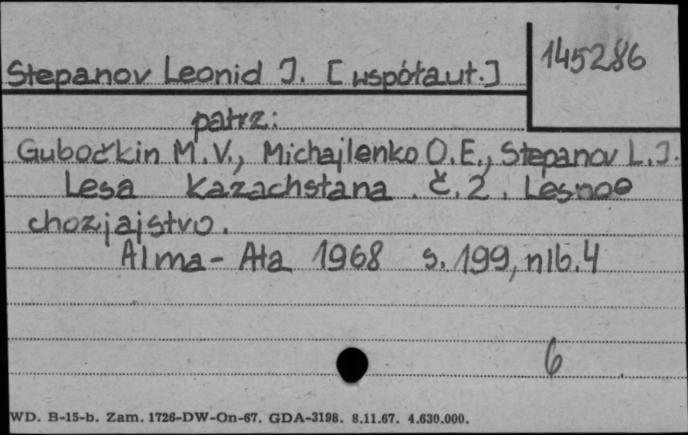 145286
Stepanov Leonid J. [współaut.]
patrz:
Gubočkin M.V., Michajlenko O.E., Stepanov L.J.
Lesa Kazachstana. č.2. Lesnoe
chozjajstvo.
Alma-Ata 1968 s. 199, nlb. 4
6
WD. B-15-b. Zam. 1726-DW-On-67. GDA-3198. 8.11.67. 4.630.000.